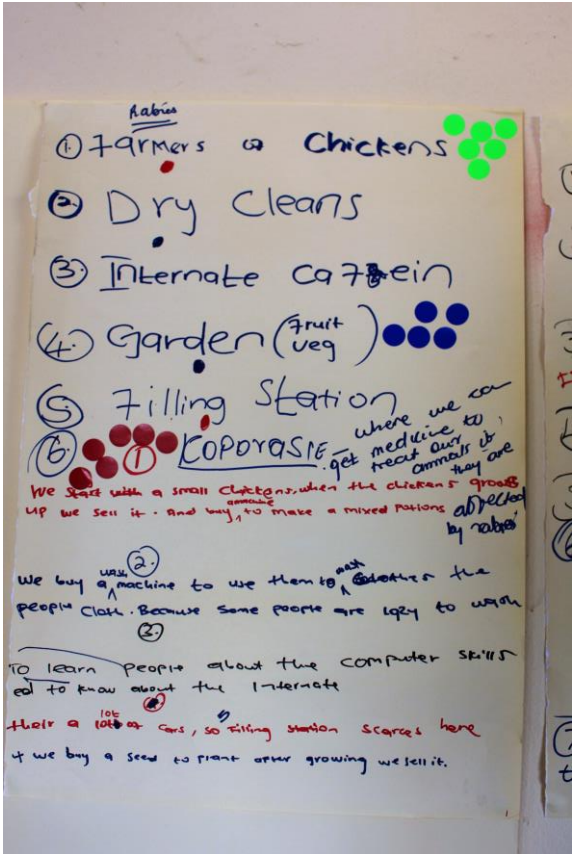 Rabies
① Farmers Chickens
② Dry Cleans
③ Internate ca ein
④ Garden (fruit veg)
⑤ Filling Station
⑥ KOPORASIE - where we can get medicine to treat our animals if they are affected by rabies
①
We start with a small chickens, when the chickens grows
up we sell it. And buy to make a mixed potions
②.
We buy a wash machine to use them to wash the
people cloth. Because some people are lazy to wash
③.
To learn people about the computer skills
ed to know about the Internate
their a lot of cars, so filling station scarces here
4 we buy a seed to plant after growing we sell it.